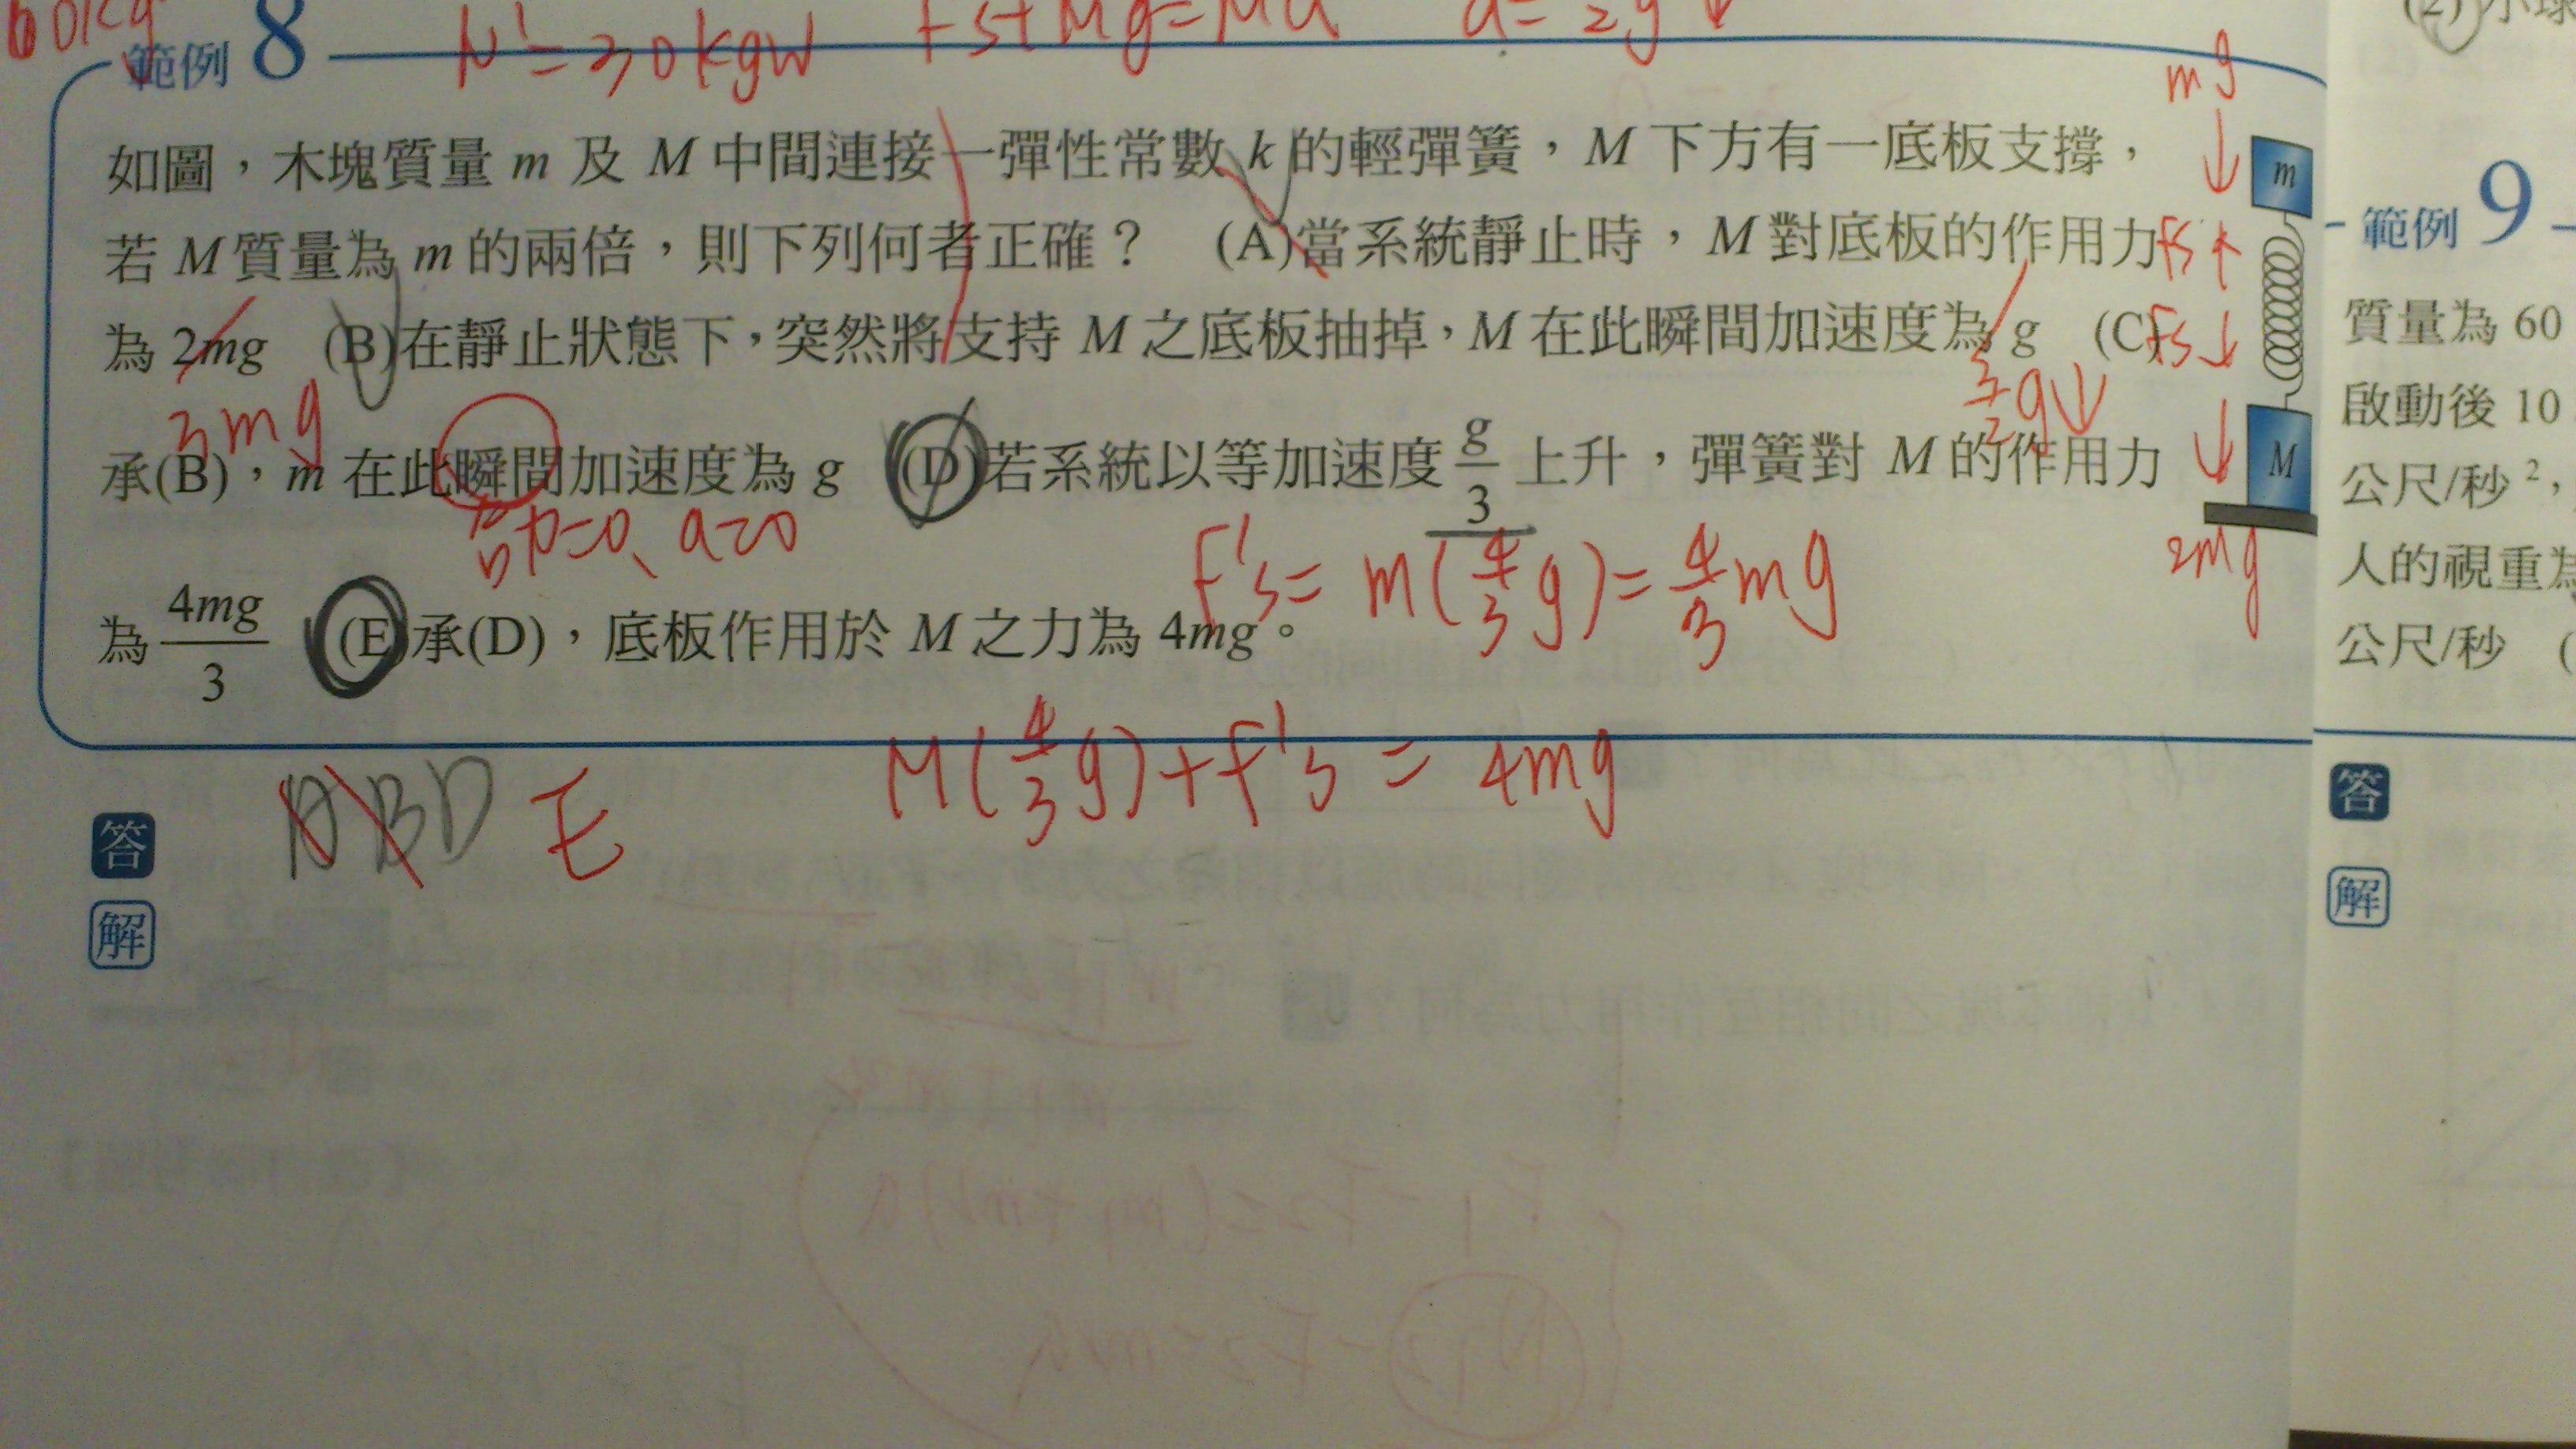 60kg
N'=30kgw
Fs+Mg=Ma
範例 8
mg
如圖，木塊質量 m 及 M 中間連接一彈性常數 k 的輕彈簧，M 下方有一底板支撐，
m
若 M 質量為 m 的兩倍，則下列何者正確？ (A)當系統靜止時，M 對底板的作用力
Fs
為 2mg (B)在靜止狀態下，突然將支持 M 之底板抽掉，M 在此瞬間加速度為 g (C)
Fs
3mg
3/2 g↓
承(B)，m 在此瞬間加速度為 g (D)若系統以等加速度 g/3 上升，彈簧對 M 的作用力
M
=0、a=0
F's = m(4/3 g) = 4/3 mg
2mg
為 4mg/3 (E)承(D)，底板作用於 M 之力為 4mg。
M(4/3 g)+F's = 4mg
ABD E
答
解
範例 9
質量為 60
啟動後 10
公尺/秒²，
人的視重為
公尺/秒 (
答
解